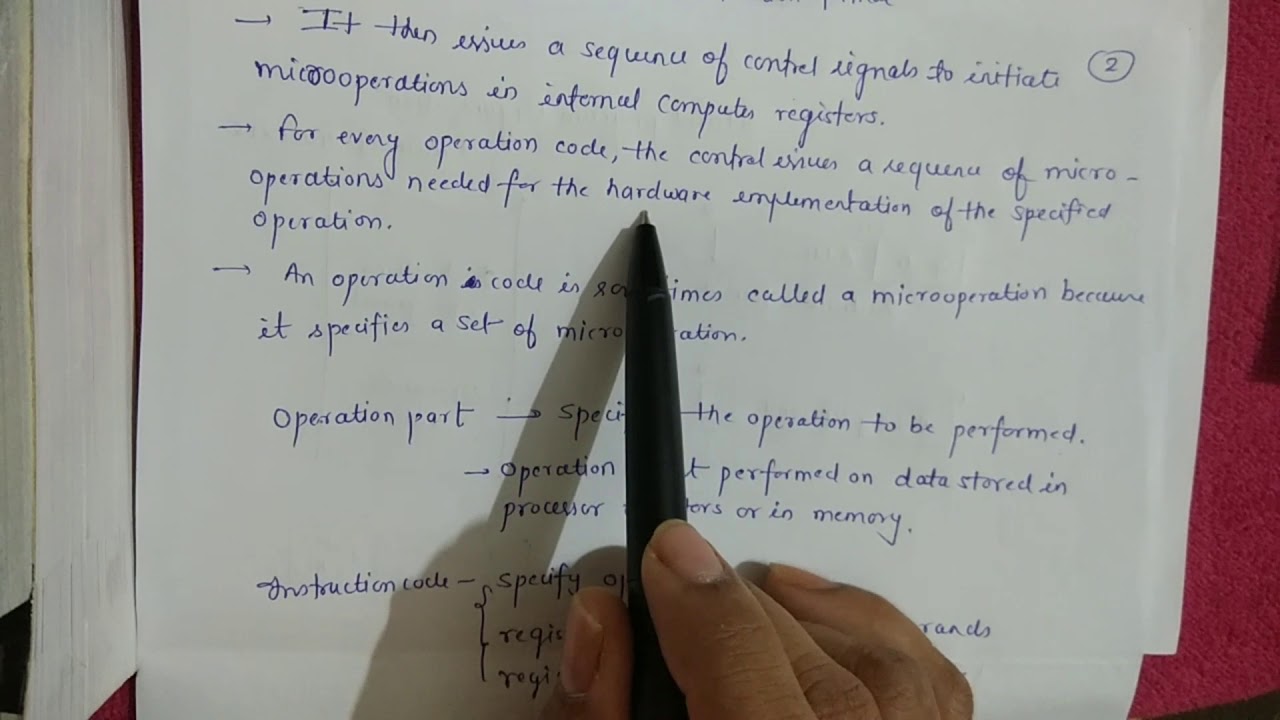 → It then issues a sequence of control signals to initiate
②
microoperations in internal computer registers.
→ for every operation code, the control issues a sequence of micro-
operations needed for the hardware implementation of the specified
operation.
→ An operation code is times called a microoperation because
it specifies a set of micro ation.
Operation part → speci the operation to be performed.
→ operation t performed on data stored in
processor tors or in memory.
Instruction code - specify op
regis rands
regi